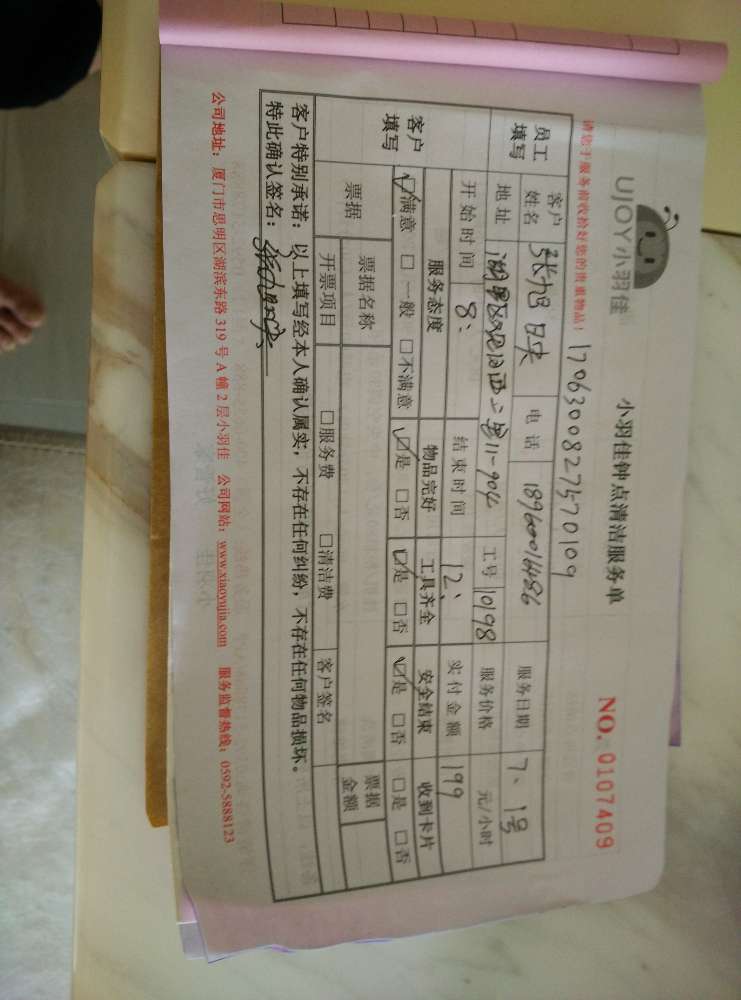 UJOY小羽佳
小羽佳钟点清洁服务单
NO. 0107409
请您于服务前收拾好您的贵重物品！
1706300827570109
员工填写 客户姓名 张旭 电话 18960016486 服务日期 7、1号
地址 湖里区 西二里11-904 工号 10198 服务价格 元/小时
客户填写 开始时间 8： 结束时间 12、 实付金额 199
服务态度 物品完好 工具齐全 安全结束 收到卡片
☑满意 □一般 □不满意 ☑是 □否 ☑是 □否 ☑是 □否 □是 □否
票据 票据名称 票据金额
开票项目 □服务费 □清洁费 客户签名
客户特别承诺：以上填写经本人确认属实，不存在任何纠纷，不存在任何物品损坏。
特此确认签名：
公司地址：厦门市思明区湖滨东路 319 号 A 幢 2 层小羽佳 公司网站：www.xiaoyujia.com 服务监督热线：0592-5888123